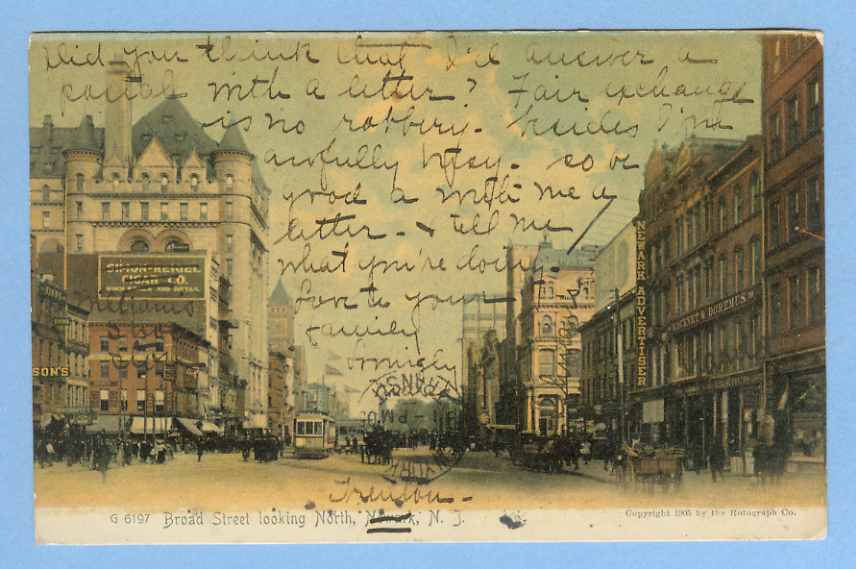 Did you think that I'll answer a
postal with a letter? Fair exchange
is no robbery. besides I'm
awfully busy. so be
good a with me a
letter. & tell me
what you're doing.
Love to your
family
lovingly
SIMON-
CIGAR CO.
SON'S
NEWARK ADVERTISER
& DOREMUS
TRANS
PM
Trenton
G 6197 Broad Street looking North, Newark, N. J.
Copyright 1905 by the Rotograph Co.